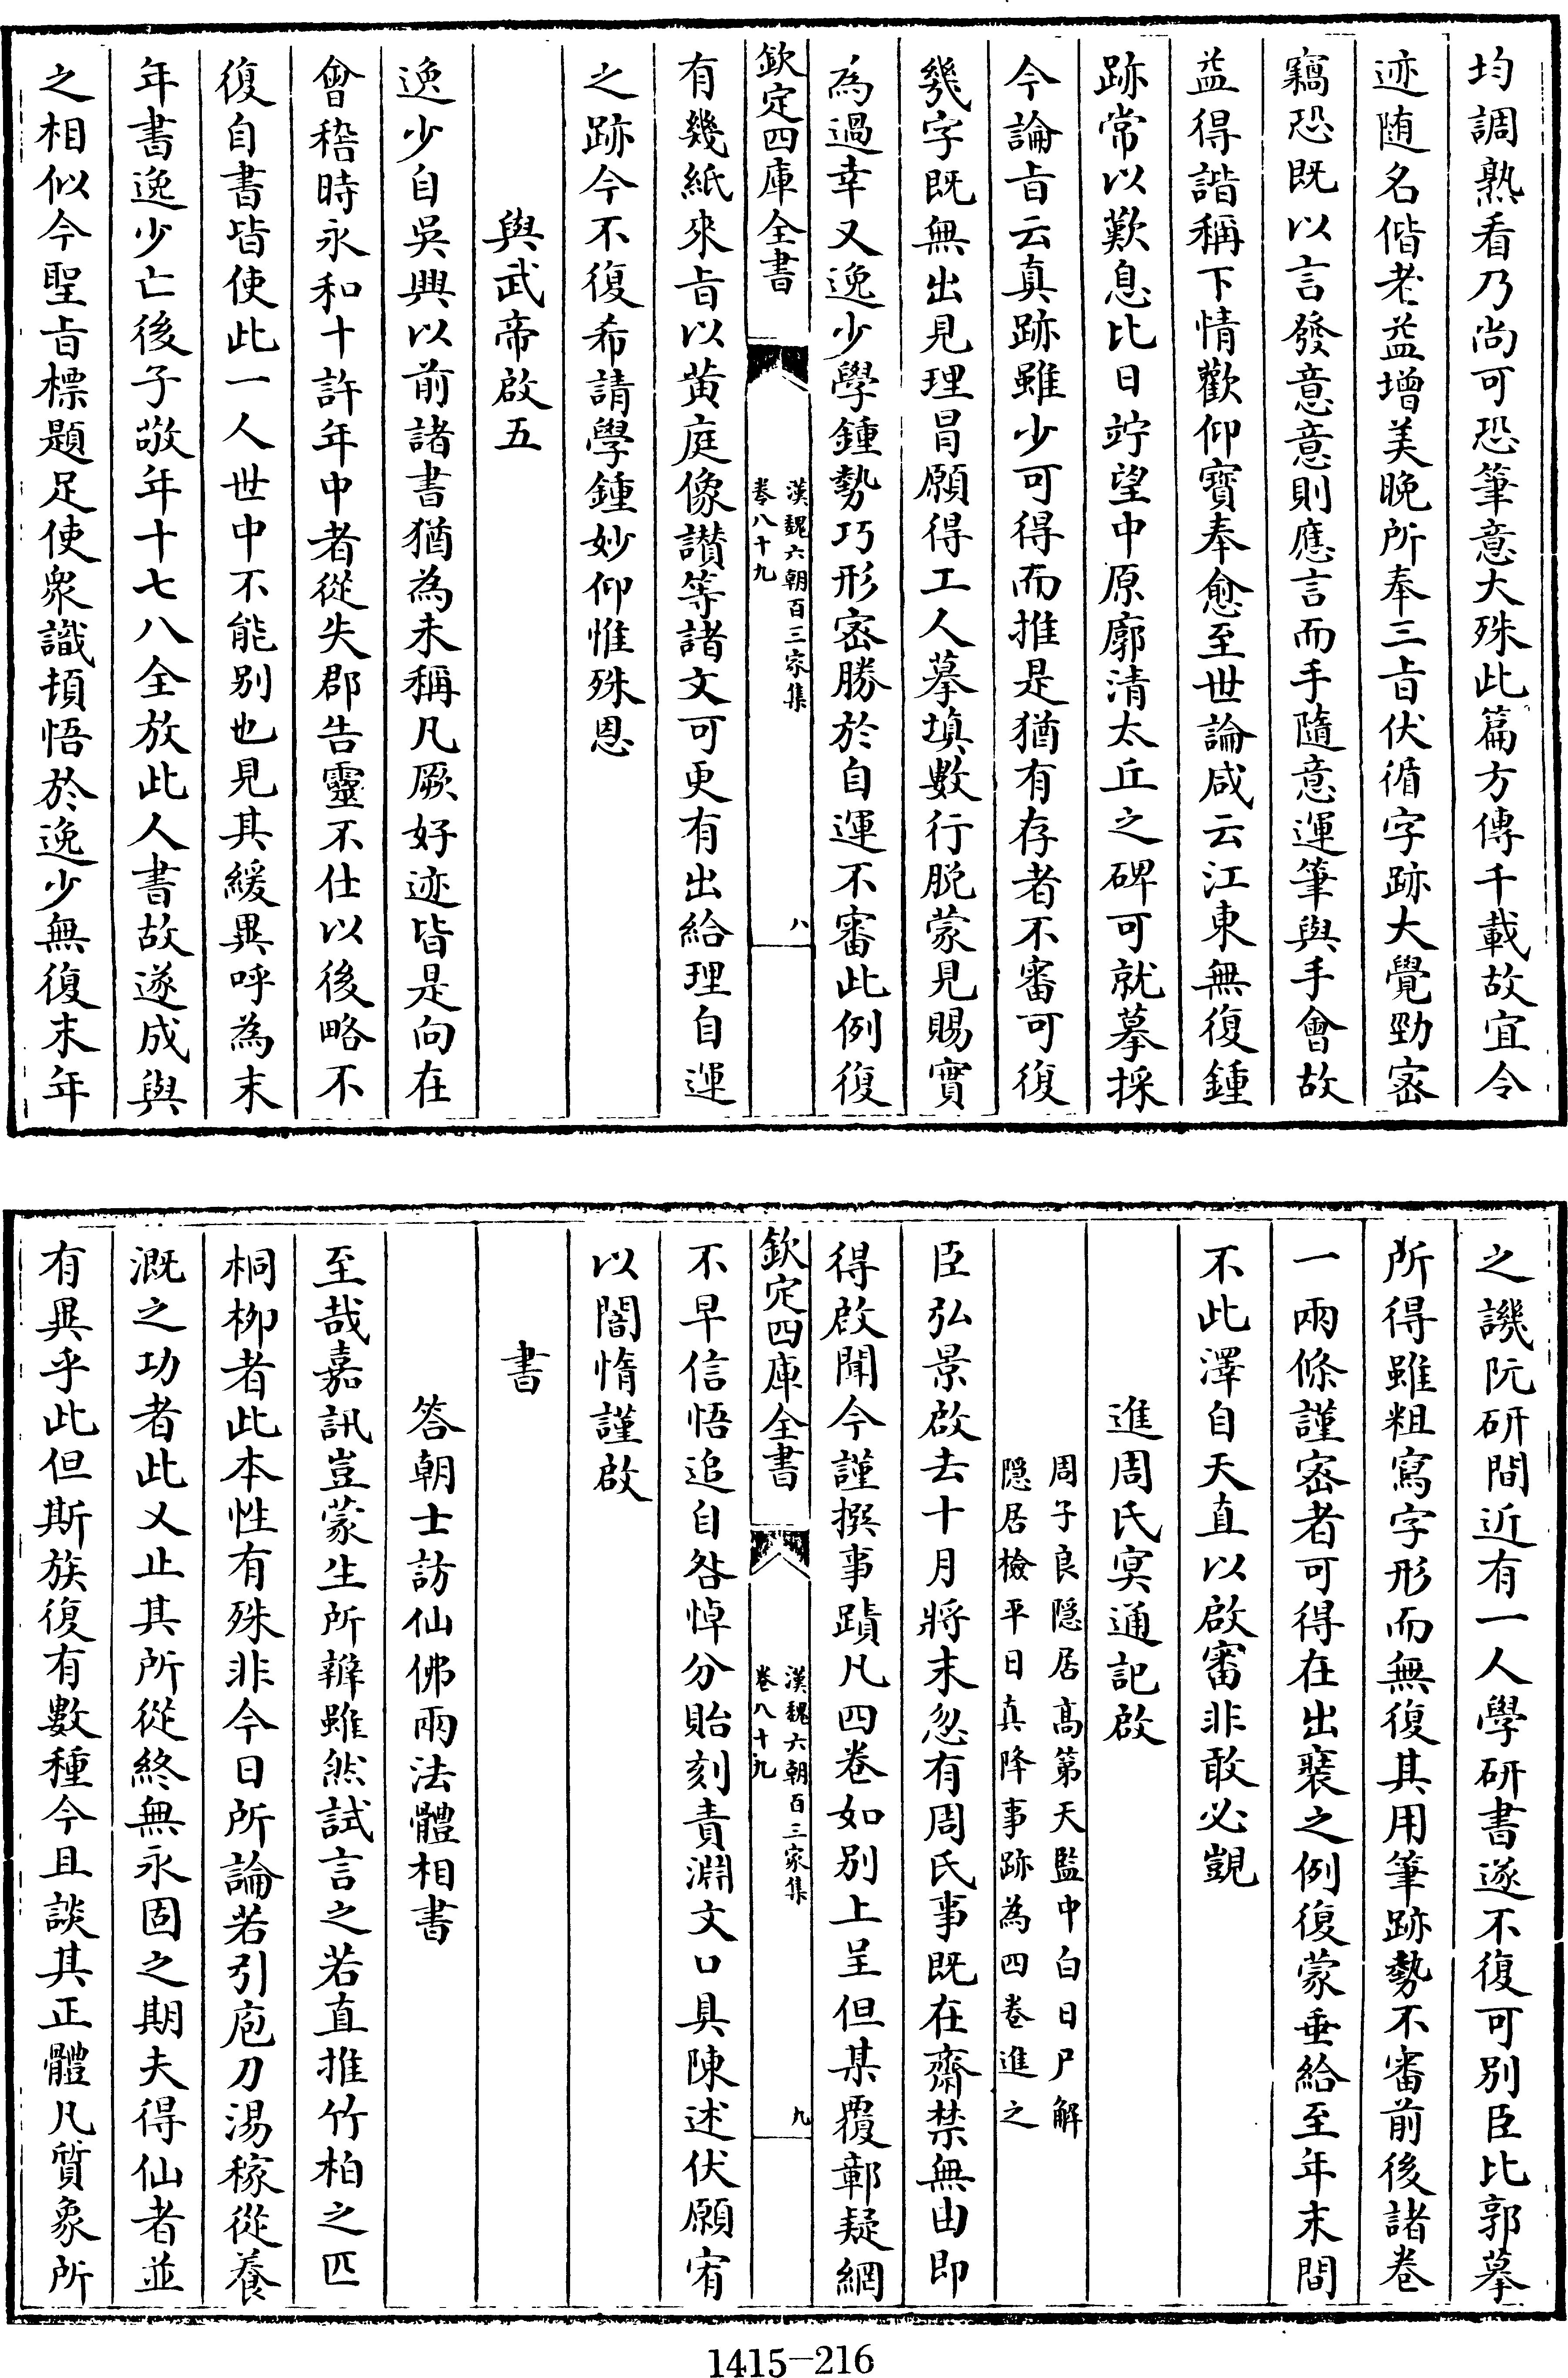 均調熟看乃尚可恐筆意大殊此篇方傳千載故宜令
迹随名偕老益增美晚所奉三㫖伏循字跡大覺勁宻
竊恐既以言發意意則應言而手隨意運筆與手會故
益得諧稱下情歡仰寳奉愈至世論咸云江東無復鍾
跡常以歎息比日竚望中原廓清太丘之碑可就摹採
今論㫖云真跡雖少可得而推是猶有存者不審可復
幾字既無出見理冒願得工人摹填數行脱蒙見賜實
為過幸又逸少學鍾勢巧形宻勝於自運不審此例復
欽定四庫全書
漢魏六朝百三家集
卷八十九
八
有幾紙來㫖以黄庭像讃等諸文可更有出給理自運
之跡今不復希請學鍾妙仰惟殊恩
與武帝啟五
逸少自吳興以前諸書猶為未稱凡厥好迹皆是向在
㑹稽時永和十許年中者從失郡告靈不仕以後略不
復自書皆使此一人世中不能别也見其緩異呼為末
年書逸少亡後子敬年十七八全放此人書故遂成與
之相似今聖㫖標題足使衆識頓悟於逸少無復末年
之譏阮研間近有一人學研書遂不復可别臣比郭摹
所得雖粗寫字形而無復其用筆跡勢不審前後諸巻
一兩條謹宻者可得在出裝之例復蒙垂給至年末間
不此澤自天直以啟審非敢必覬
進周氏㝠通記啟
周子良隱居髙第天監中白日尸解
隱居檢平日真降事跡為四巻進之
臣弘景啟去十月將末忽有周氏事既在齋禁無由即
得啟聞今謹撰事蹟凡四巻如别上呈但某覆鄣疑網
欽定四庫全書
漢魏六朝百三家集
卷八十九
九
不早信悟追自咎悼分貽刻責淵文口具陳述伏願宥
以闇惰謹啟
書
答朝士訪仙佛兩法體相書
至哉嘉訊豈蒙生所辨雖然試言之若直推竹柏之匹
桐栁者此本性有殊非今日所論若引庖刀湯稼從養
溉之功者此乂止其所從終無永固之期夫得仙者並
有異乎此但斯族復有數種今且談其正體凡質象所
1415-216